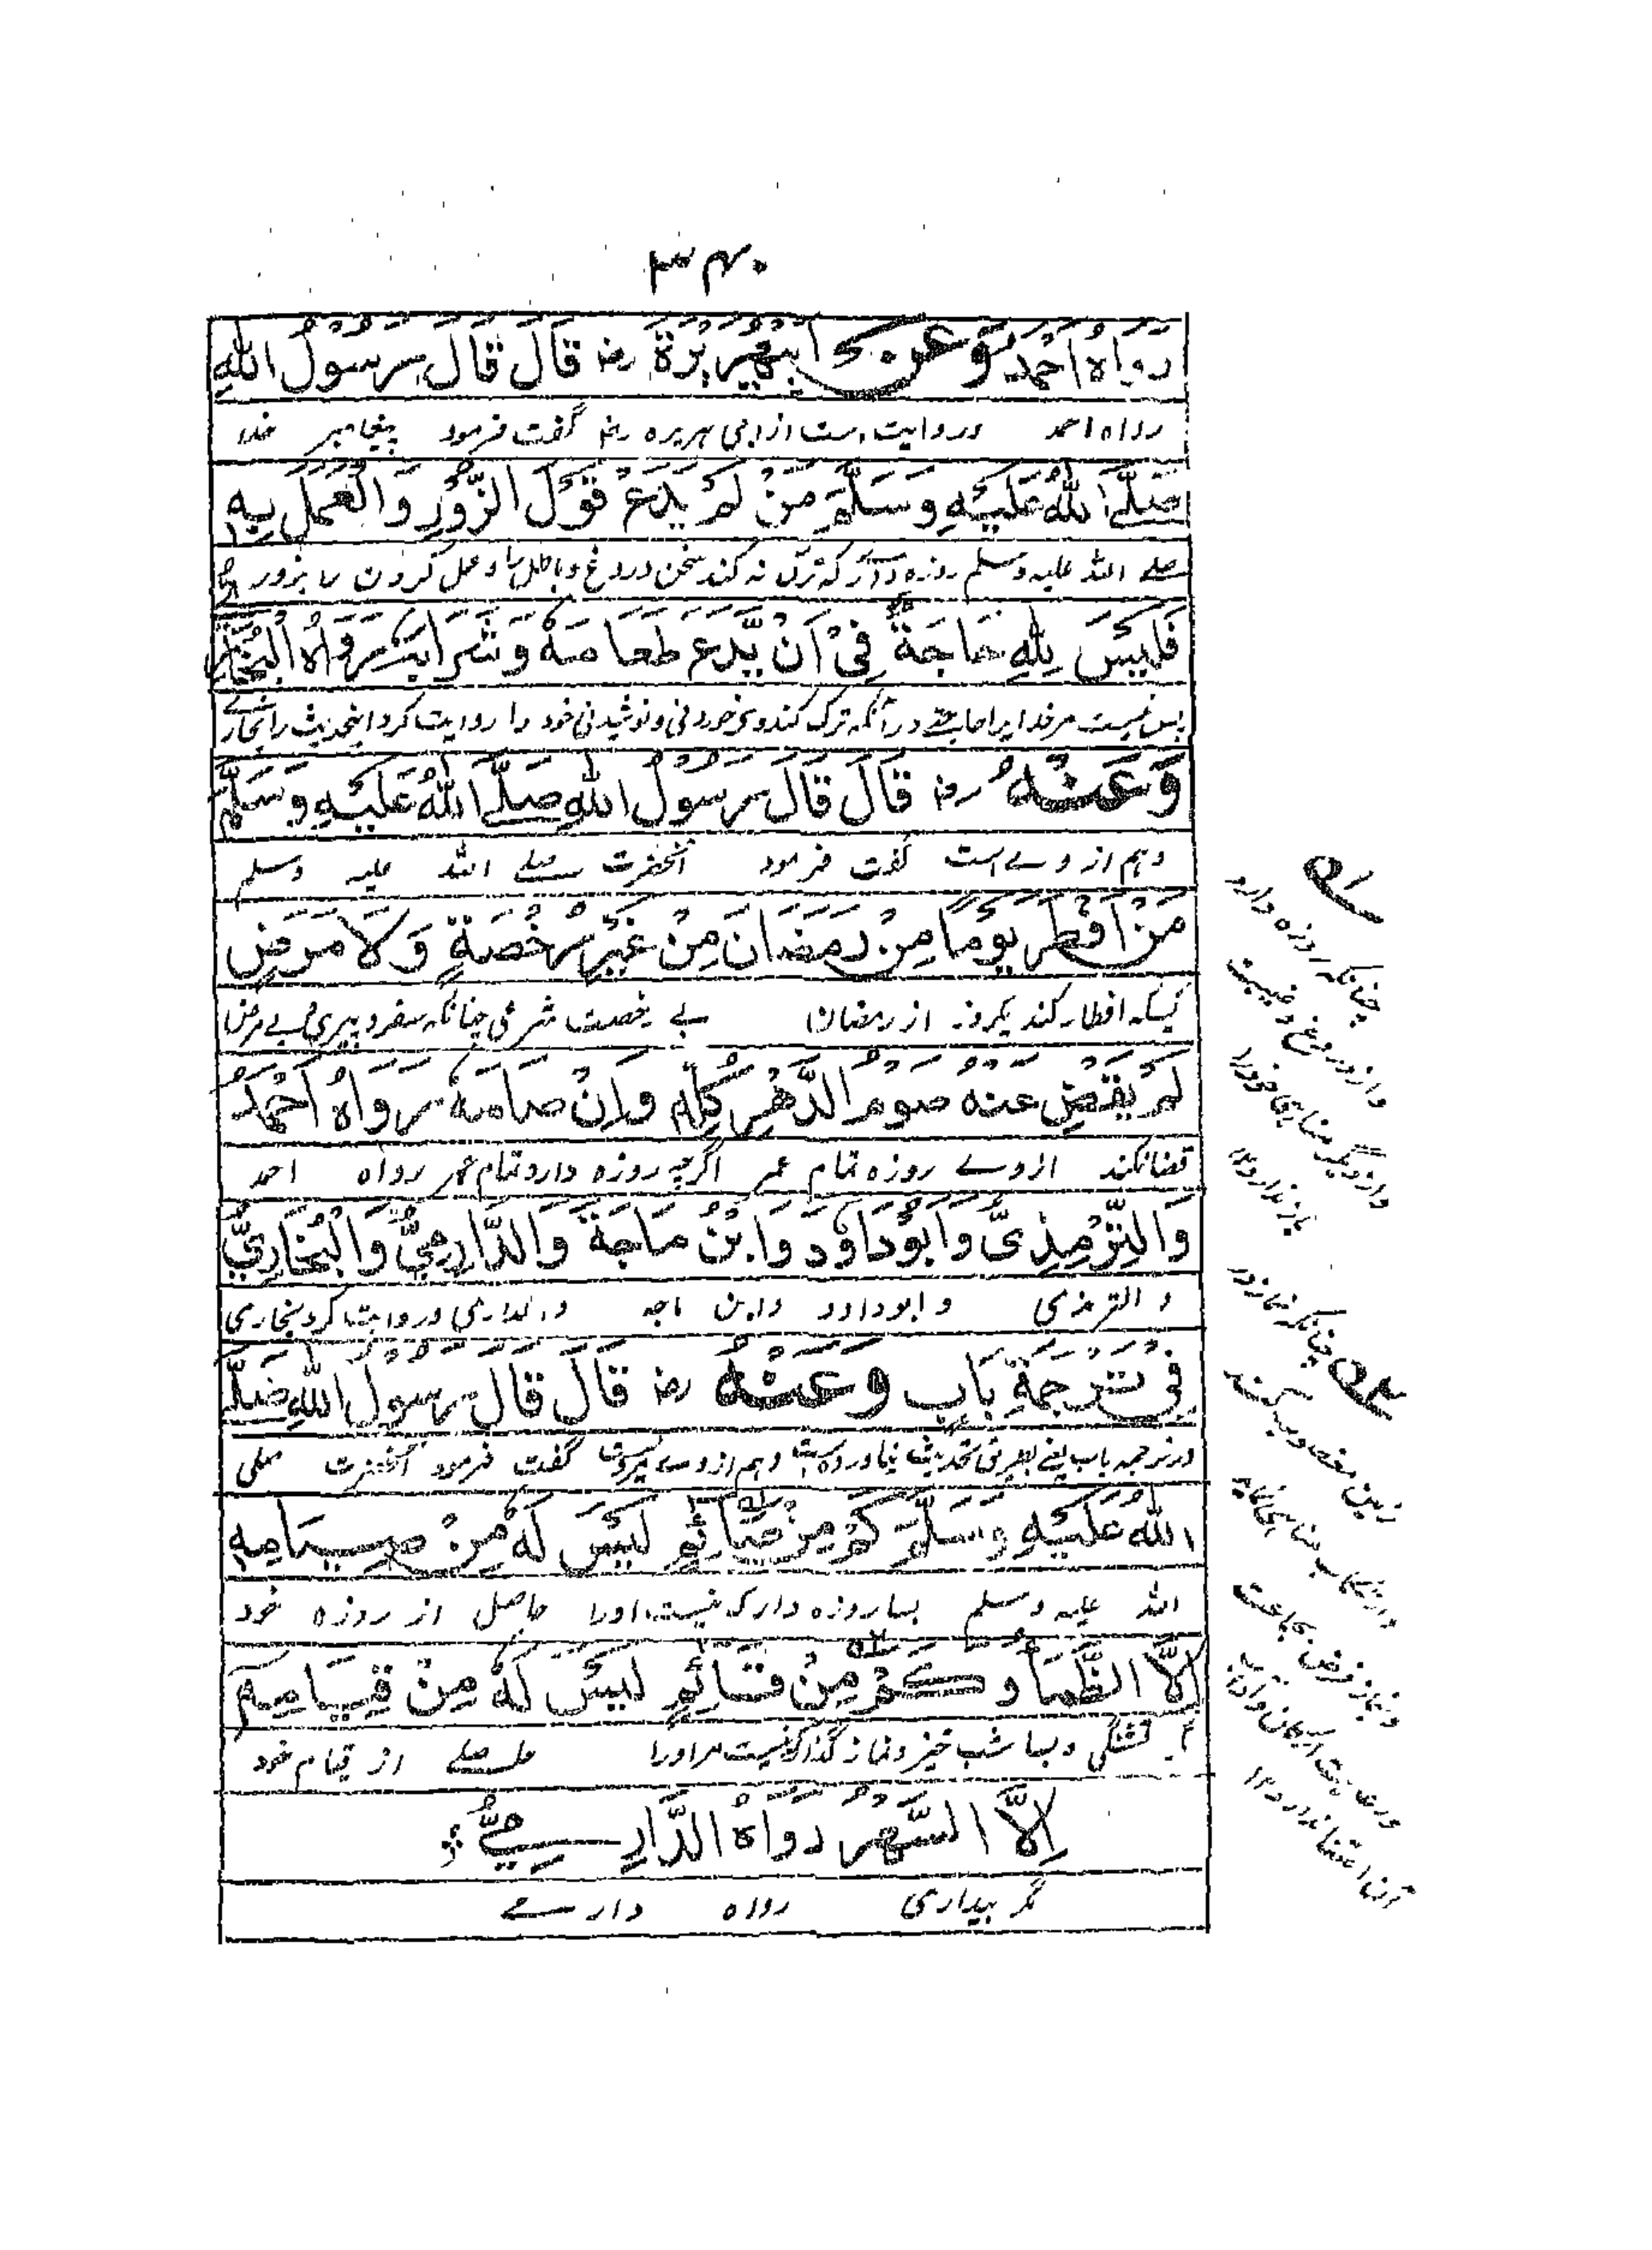 ۳۴۰
رَوَاهُ اَحْمَدُ وَعَنْ اَبِيْ هُرَيْرَةَ رض قَالَ قَالَ رَسُوْلُ اللهِ
رواه احمد وروایت ست از ابی هریره رض گفت فرمود پیغامبر خدا
صَلَّى اللهُ عَلَيْهِ وَسَلَّمَ مَنْ لَمْ يَدَعْ قَوْلَ الزُّوْرِ وَالْعَمَلَ بِهٖ
صلے الله علیه وسلم روزه دارے که ترک نه کند سخن دروغ و باطل را و عمل کردن را بزور
فَلَيْسَ لِلّٰهِ حَاجَةٌ فِيْ اَنْ يَّدَعَ طَعَامَهٗ وَشَرَابَهٗ رَوَاهُ الْبُخَارِيُّ
پس نیست مر خدایرا حاجتے در آنکه ترک کند وی خوردنی و نوشیدنی خود را روایت کرد اینحدیث را بخاری
وَعَنْهُ رض قَالَ قَالَ رَسُوْلُ اللهِ صَلَّى اللهُ عَلَيْهِ وَسَلَّمَ
وهم از وے است گفت فرمود آنحضرت صلے الله علیه وسلم
مَنْ اَفْطَرَ يَوْمًا مِنْ رَمَضَانَ مِنْ غَيْرِ رُخْصَةٍ وَلَا مَرَضٍ
کسیکه افطار کند یکروز از رمضان بے رخصت شرعی چنانکه سفر و پیری و بے مرض
لَمْ يَقْضِ عَنْهُ صَوْمُ الدَّهْرِ كُلِّهٖ وَاِنْ صَامَهٗ رَوَاهُ اَحْمَدُ
قضا نکند از وے روزه تمام عمر اگرچه روزه دارد تمام عمر رواه احمد
وَالتِّرْمِذِيُّ وَاَبُوْدَاوٗدَ وَابْنُ مَاجَةَ وَالدَّارِمِيُّ وَالْبُخَارِيُّ
و الترمذی و ابوداود وابن ماجه والدارمی وروایت کرد بخاری
فِيْ تَرْجَمَةِ بَابٍ وَعَنْهُ رض قَالَ قَالَ رَسُوْلُ اللهِ صَلَّى
در ترجمه باب یعنے گفت فرمود آنحضرت صلی
اللهُ عَلَيْهِ وَسَلَّمَ كَمْ مِنْ صَائِمٍ لَيْسَ لَهٗ مِنْ صِيَامِهٖ
الله علیه وسلم بسا روزه دار که نیست اورا حاصل از روزه خود
اِلَّا الظَّمَأُ وَكَمْ مِنْ قَائِمٍ لَيْسَ لَهٗ مِنْ قِيَامِهٖ
تشنگی وبسا شب خیز ونماز گذار که نیست مر اورا حاصلے از قیام خود
اِلَّا السَّهَرُ رَوَاهُ الدَّارِمِيُّ
مگر بیداری رواه دارمے
چنانکه روزه دارد
واز دروغ و غیبت
باز ندارد
زمین مغصوب کند